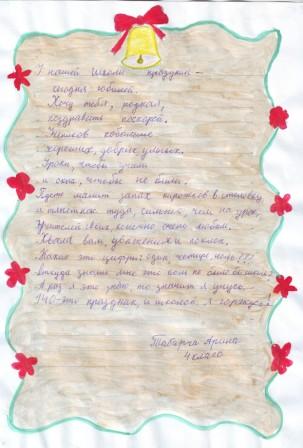 У нашей школы праздник –
сегодня юбилей.
Хочу тебя, родная,
поздравить поскорей.
хороших, добрых, умных.
Уроки, чтобы учили
и окна, чтобы не били.
Пусть манит запах пирожков в столовку
и тянет нас туда, сильней, чем на урок,
Учителей своих, конечно очень любим.
вам, уважения и поклон.
Какие это цифры: один, четыре, ноль???
Откуда знать мне это
А раз я это знаю, то значит я учусь.
140-ый праздник, и школой я горжусь!
Табарча Арина
4 класс